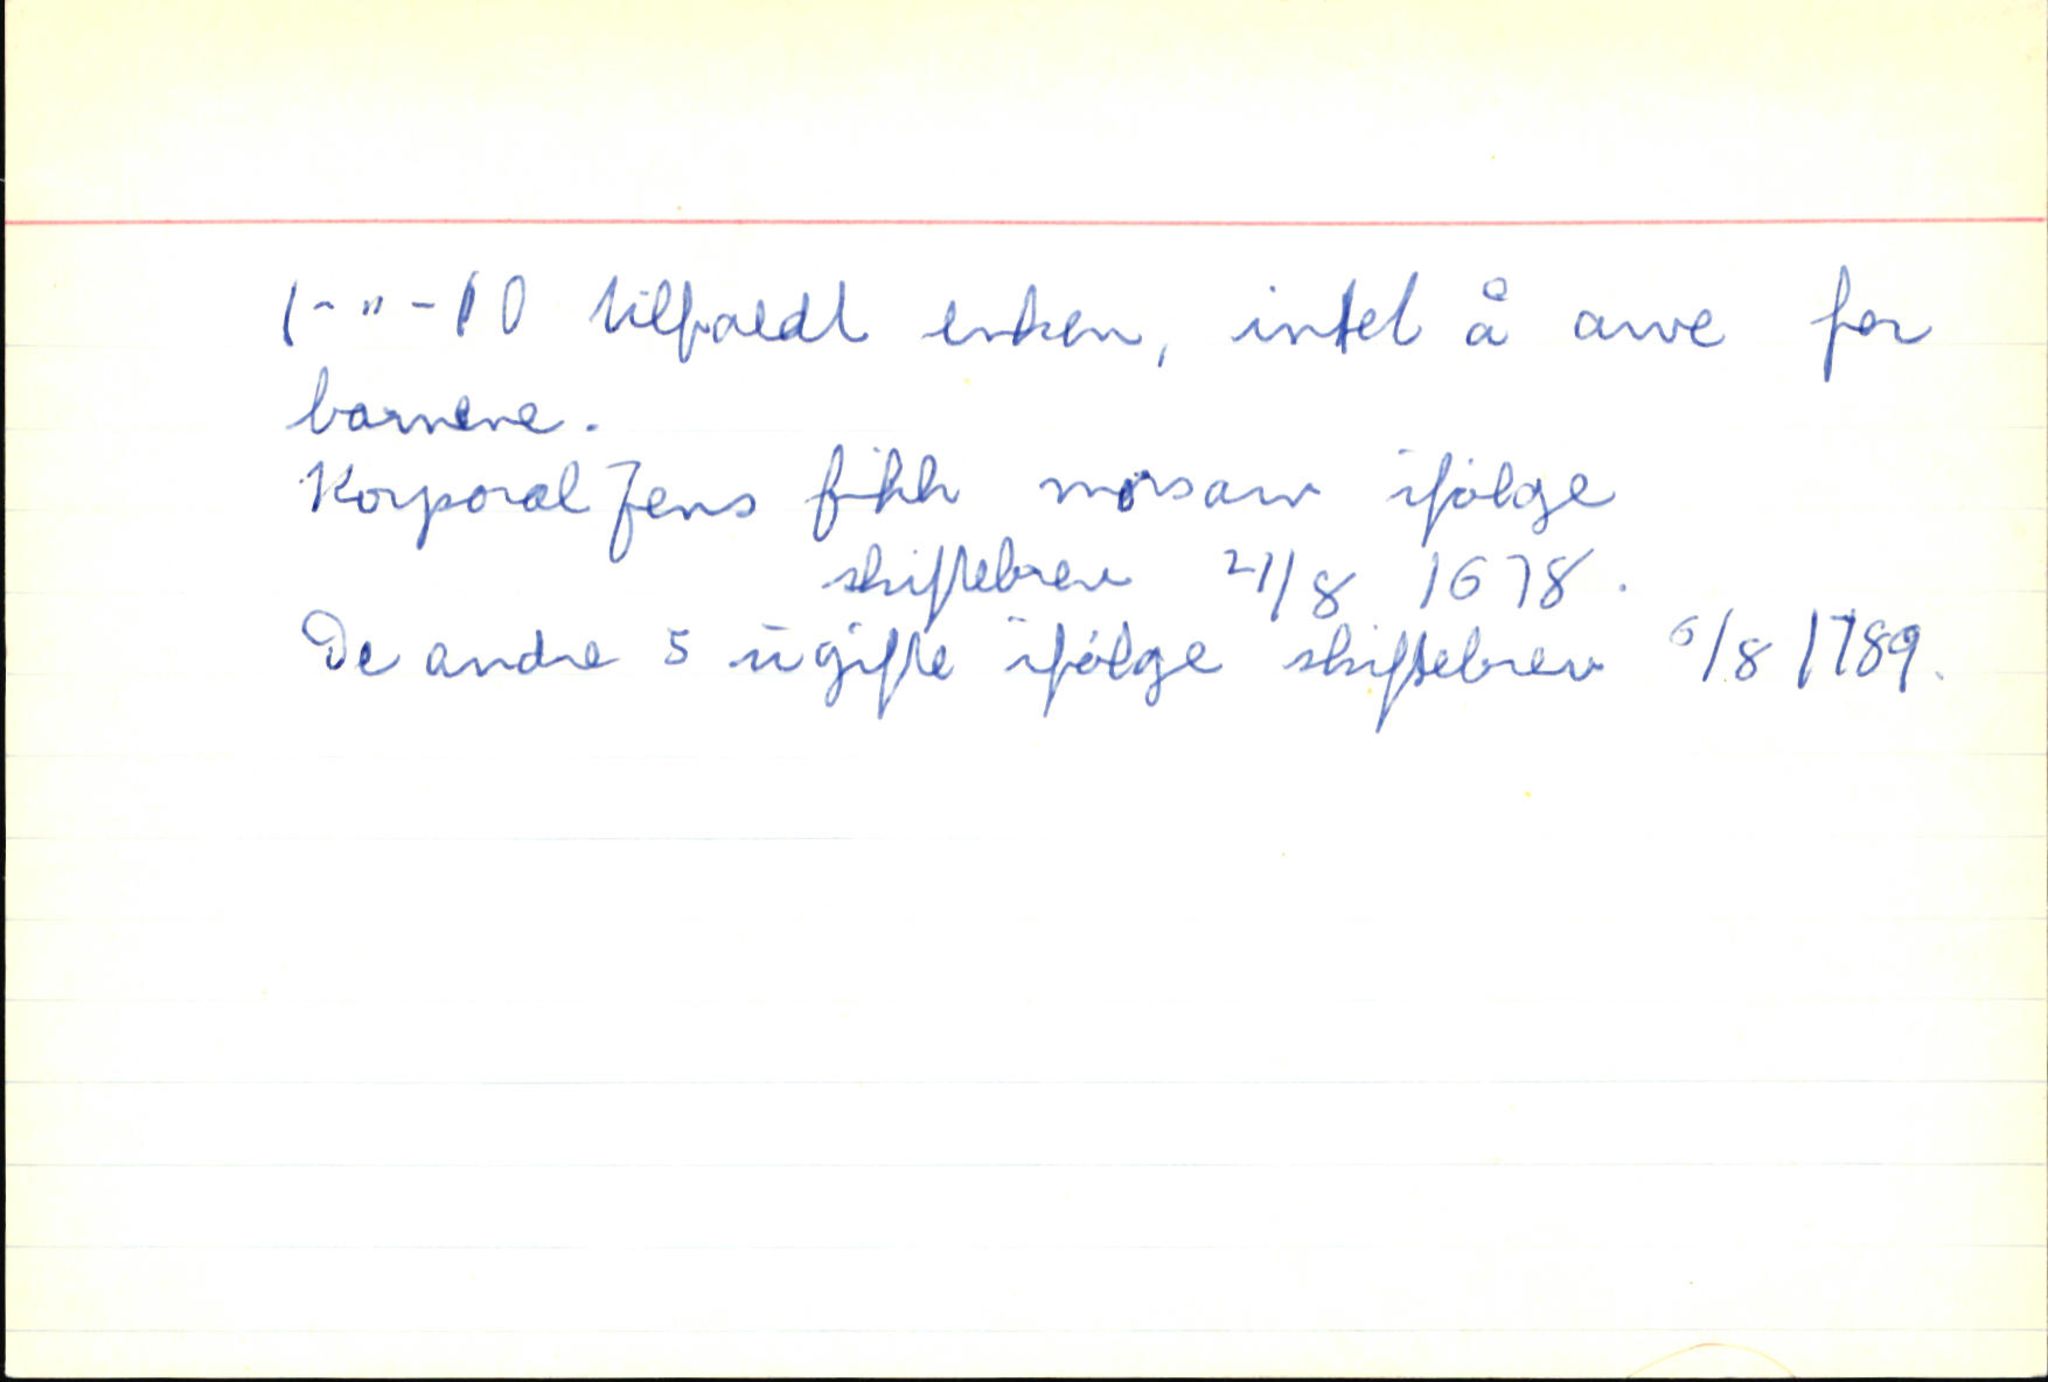 1-"-10 tilfaldt enken, intet å arve for
barnene.
Korporal Jens fikk morsarv ifølge
skiftebrev 21/8 1678.
De andre 5 ugifte ifølge skiftebrev 6/8 1789.